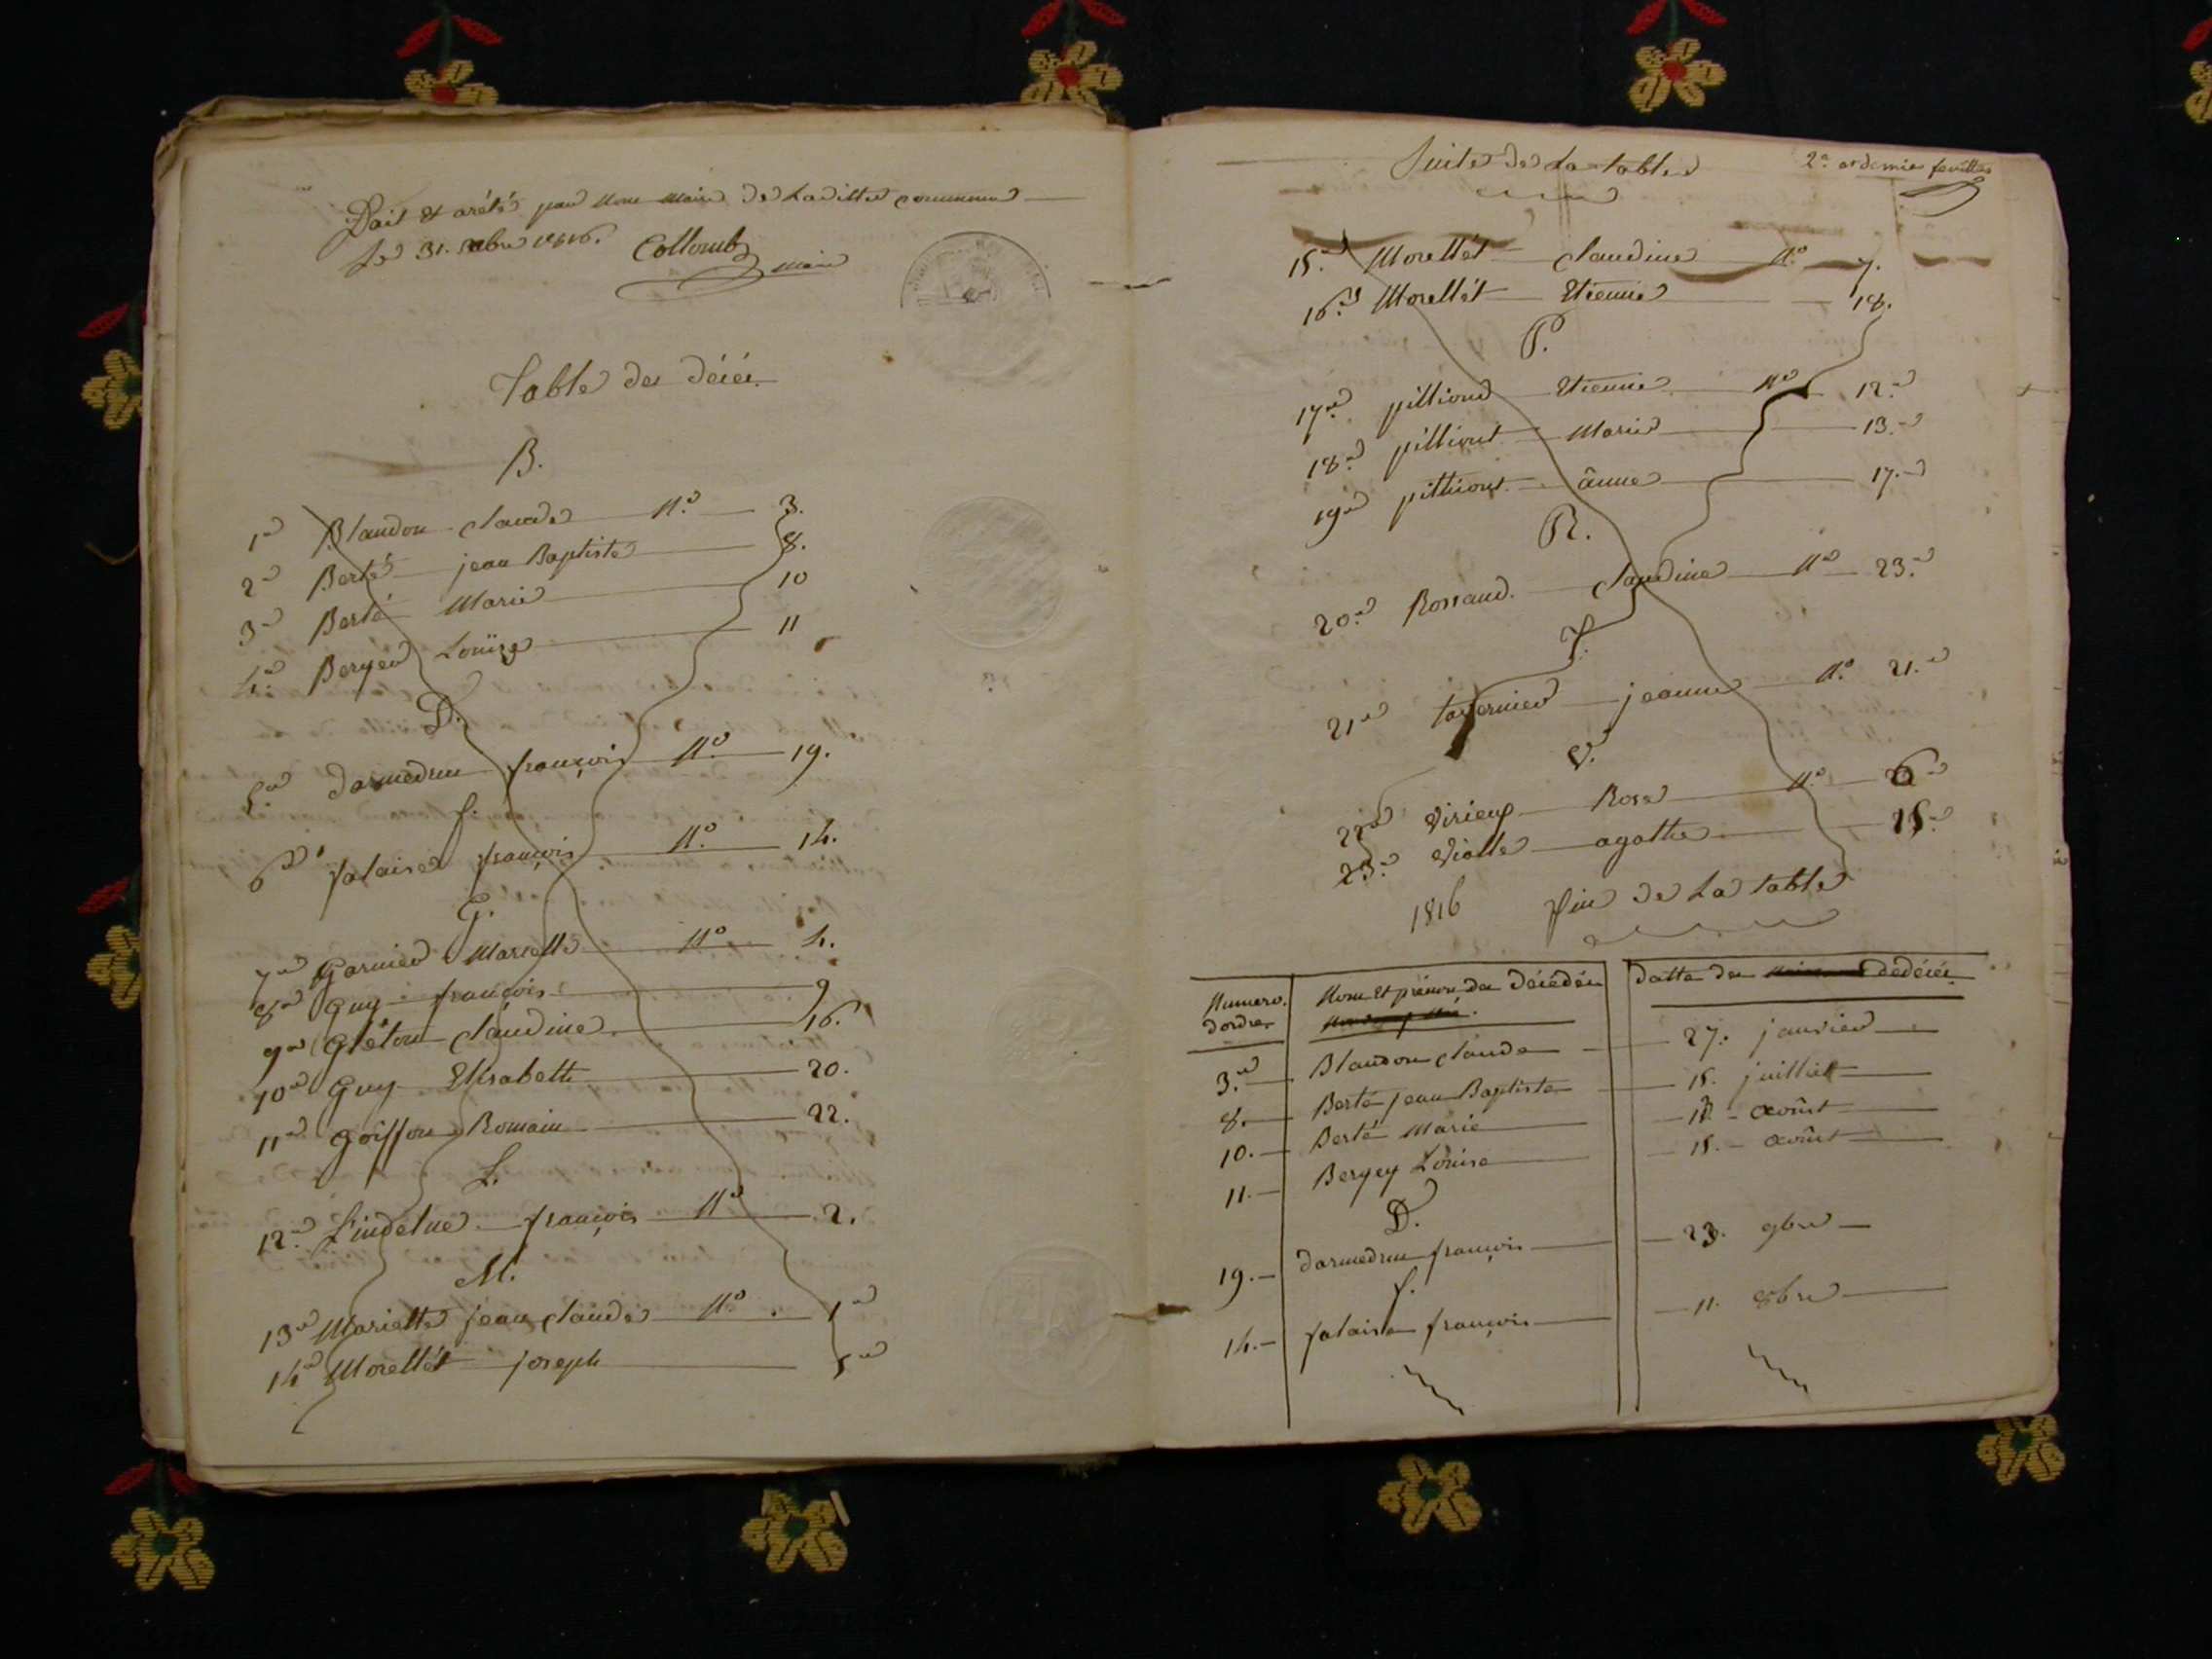 Fait et arété par Nous Maire de Laditte commune
Le 31. Xbre 1816. Collomb
Maire
Table des décés
B.
1e Blandon claude No 3.
2e Berté jean Baptiste 8.
3e Berté Marie 10
4e Bergey Louise 11
D.
5e darmedru françois No 19.
f.
6e falaise françois No 14.
G.
7e Garnier Mariette No 4.
8e Guy françois 9
9e Gléton claudine 16.
10e Guy Elisabette 20.
11e Goiffon Romain 22.
L.
12e L'indelue françois No 2.
M.
13e Mariette jean claude No 1e
14e Morellét joseph 5e
Suite de La table
2e et dernier feuillet
15e Morellét claudine No 7.
16e Morellét Etienne 18.
P.
17e pilliond Etienne No 12e
18e pilliont Marie 13e
19e pilliont ânne 17e
R.
20e Rossand claudine No 23e
T.
21e tavernier jeanne No 21e
V.
22e Virieux Rose No 6e
23e Violle agathe 15e
1816 fin de La table
Numero. dordre
Nom Et prénom des décédés
datte des dédécés
3e Blandon claude 27. janvier
8. Berté jean Baptiste 15. juilliet
10. Berté Marie août
11. Bergey Louise 15. août
D.
19. darmedru françois 23. 9bre
f.
14. falaise françois 11. 8bre